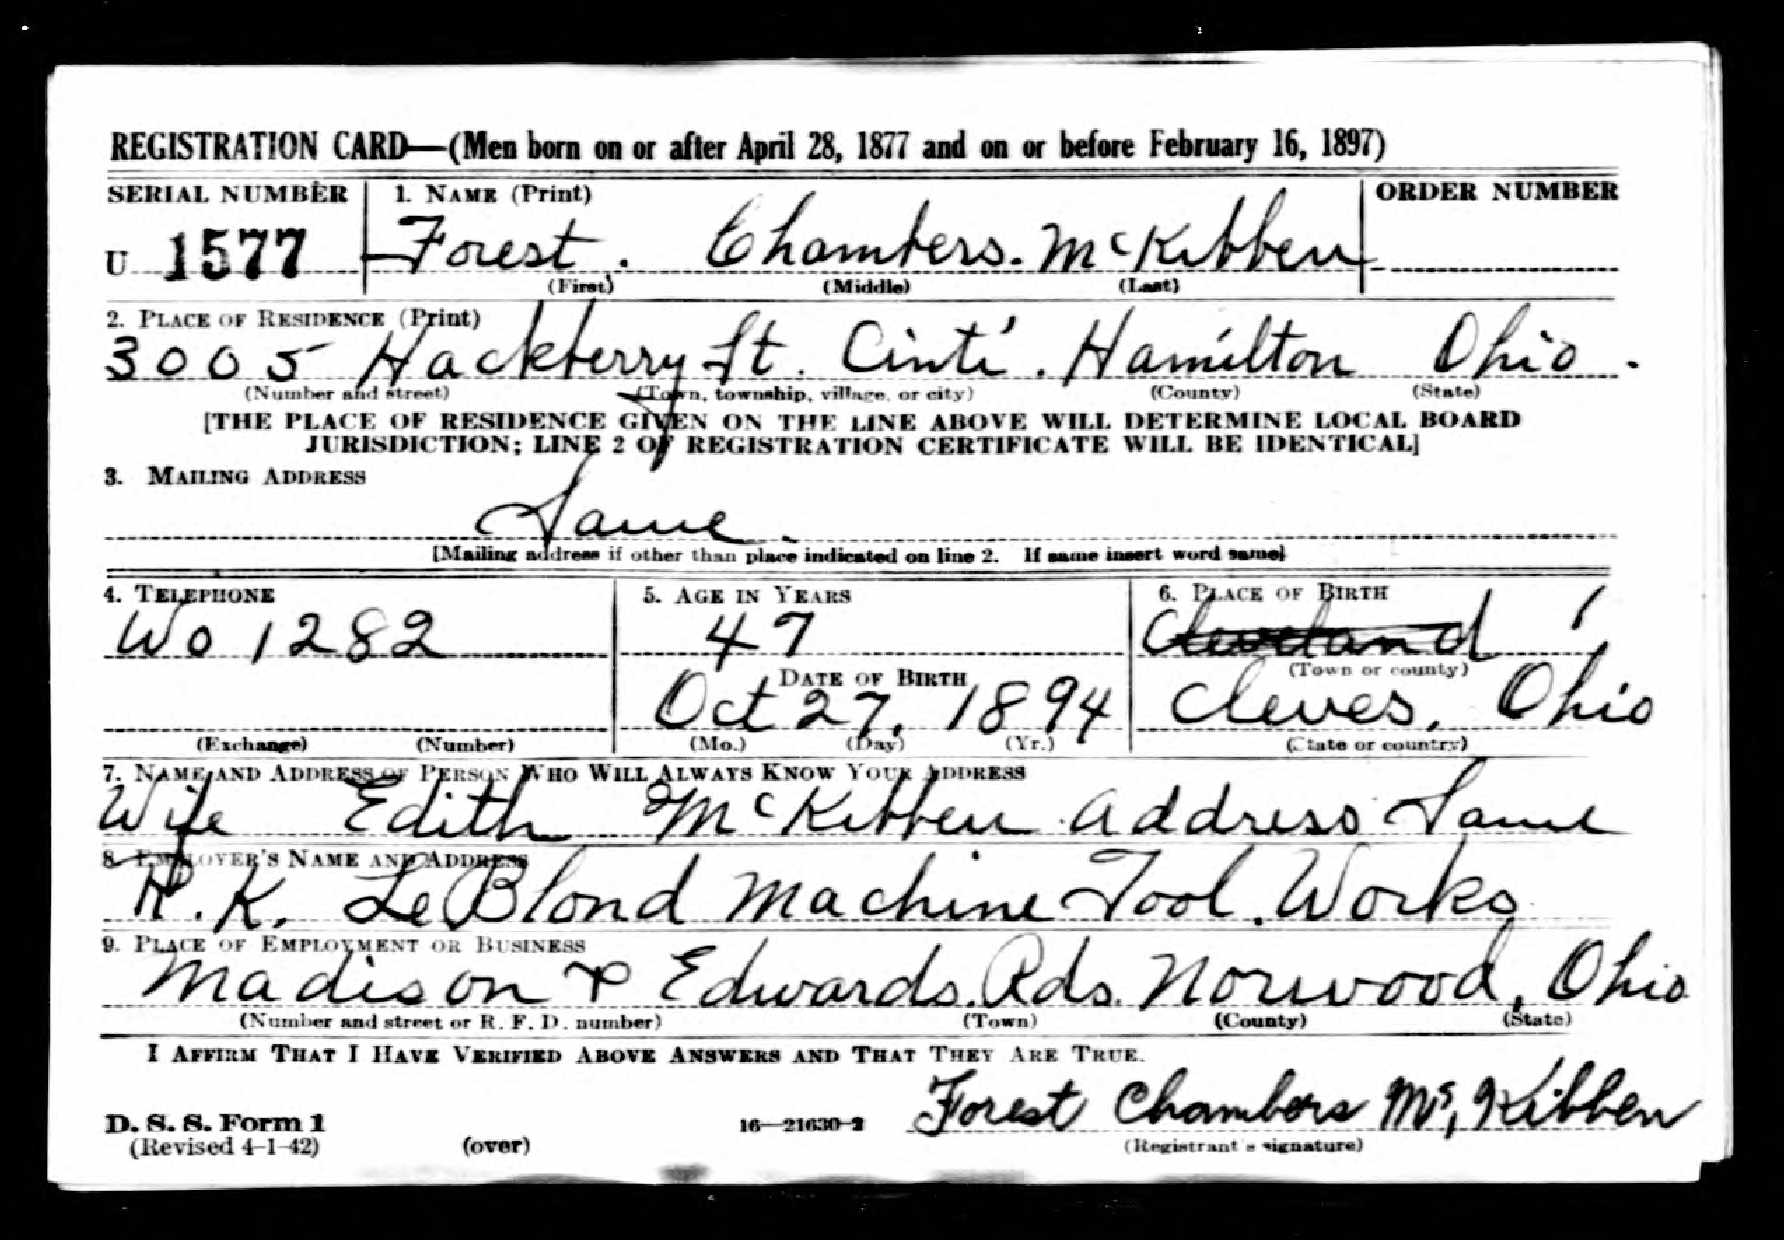 REGISTRATION CARD—(Men born on or after April 28, 1877 and on or before February 16, 1897)
SERIAL NUMBER 1. NAME (Print) ORDER NUMBER
U 1577 Forest. Chambers. McKibben
(First) (Middle) (Last)
2. PLACE OF RESIDENCE (Print)
3005 Hackberry St. Cinti'. Hamilton Ohio.
(Number and street) (Town, township, village, or city) (County) (State)
[THE PLACE OF RESIDENCE GIVEN ON THE LINE ABOVE WILL DETERMINE LOCAL BOARD
JURISDICTION; LINE 2 OF REGISTRATION CERTIFICATE WILL BE IDENTICAL]
3. MAILING ADDRESS
Same.
[Mailing address if other than place indicated on line 2. If same insert word same]
4. TELEPHONE 5. AGE IN YEARS 6. PLACE OF BIRTH
Wo 1282 47 Cleveland
(Town or county)
DATE OF BIRTH
Oct 27, 1894 Cleves, Ohio
(Exchange) (Number) (Mo.) (Day) (Yr.) (State or country)
7. NAME AND ADDRESS OF PERSON WHO WILL ALWAYS KNOW YOUR ADDRESS
Wife Edith McKibben Address Same
8. EMPLOYER'S NAME AND ADDRESS
R. K. LeBlond Machine Tool Works
9. PLACE OF EMPLOYMENT OR BUSINESS
Madison & Edwards Rds. Norwood, Ohio
(Number and street or R. F. D. number) (Town) (County) (State)
I AFFIRM THAT I HAVE VERIFIED ABOVE ANSWERS AND THAT THEY ARE TRUE.
Forest Chambers Mc,Kibben
D. S. S. Form 1 16—21630-2
(Revised 4-1-42) (over) (Registrant's signature)